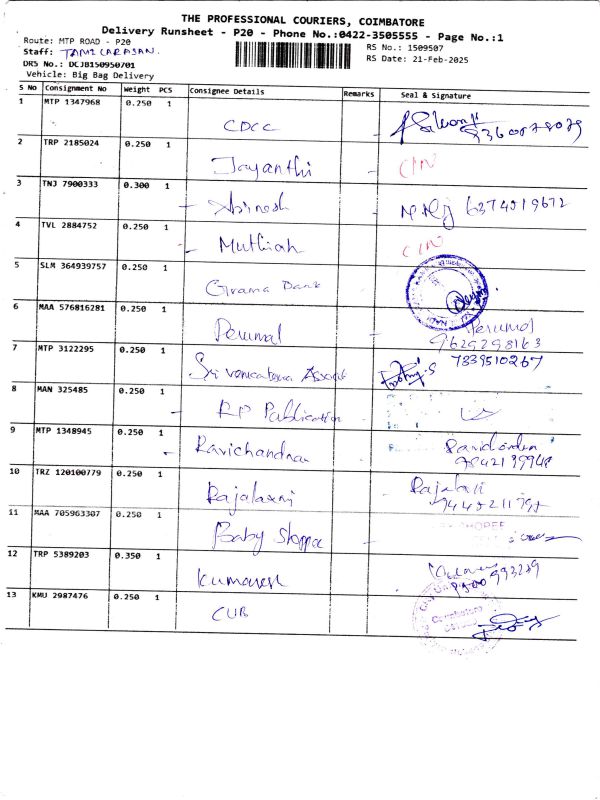 THE PROFESSIONAL COURIERS, COIMBATORE
Delivery Runsheet - P20 - Phone No.:0422-3505555 - Page No.:1
Route: MTP ROAD - P20
RS No.: 1509507
Staff: TAMILARASAN.
RS Date: 21-Feb-2025
DRS No.: DCJB150950701
Vehicle: Big Bag Delivery
S No Consignment No Weight PCS Consignee Details Remarks Seal & Signature
1 MTP 1347968 0.250 1 CDCC
2 TRP 2185024 0.250 1 Jayanthi
3 TNJ 7900333 0.300 1 Abinesh 6374819672
4 TVL 2884752 0.250 1 Muthiah
5 SLM 364939757 0.250 1 Grama Bank
6 MAA 576816281 0.250 1 Perumal Perumal
9629298163
7 MTP 3122295 0.250 1 Sri venkateswara 7339510267
8 MAN 325485 0.250 1 RP Publication
9 MTP 1348945 0.250 1 Ravichandran
10 TRZ 120100779 0.250 1 Rajalaxmi
11 MAA 705963307 0.250 1 Baby Shoppee
12 TRP 5389203 0.350 1 Kumaresh
13 KMU 2987476 0.250 1 CUB